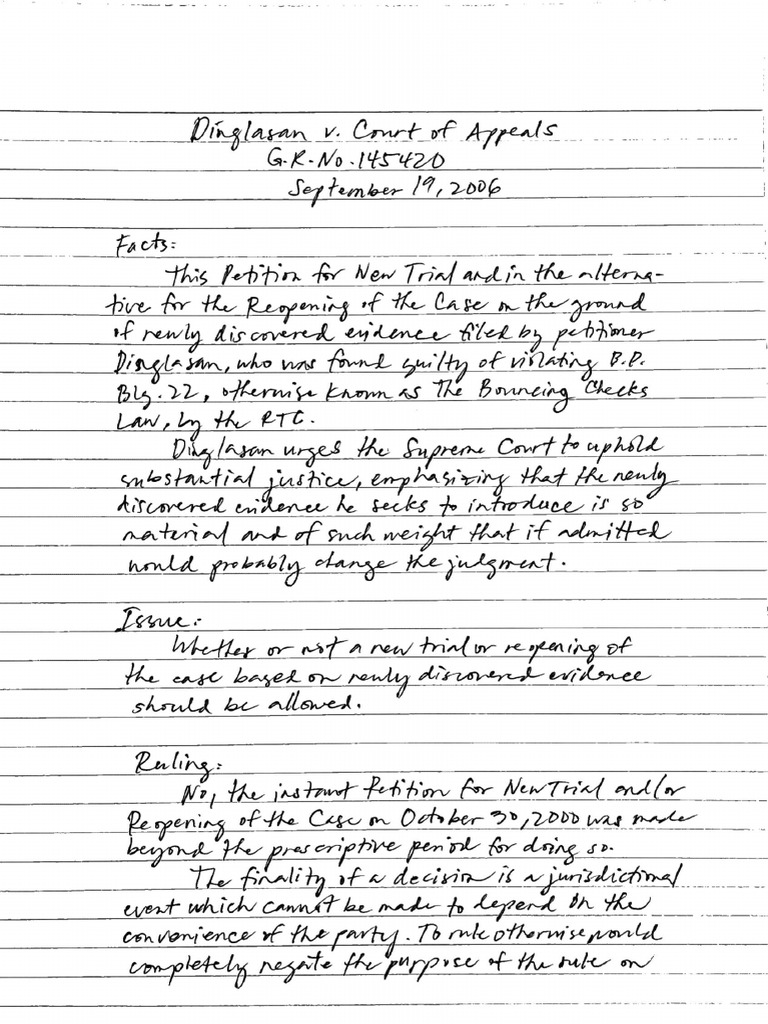 Dinglasan v. Court of Appeals
G.R. No. 145420
September 19, 2006
Facts:
This Petition for New Trial and in the alterna-
tive for the Reopening of the Case on the ground
of newly discovered evidence filed by petitioner
Dinglasan, who was found guilty of violating B.P.
Blg. 22, otherwise known as The Bouncing Checks
Law, by the RTC.
Dinglasan urges the Supreme Court to uphold
substantial justice, emphasizing that the newly
discovered evidence he seeks to introduce is so
material and of such weight that if admitted
would probably change the judgment.
Issue:
Whether or not a new trial or reopening of
the case based on newly discovered evidence
should be allowed.
Ruling:
No, the instant Petition for New Trial and/or
Reopening of the Case on October 30, 2000 was made
beyond the prescriptive period for doing so.
The finality of a decision is a jurisdictional
event which cannot be made to depend on the
convenience of the party. To rule otherwise would
completely negate the purpose of the rule on